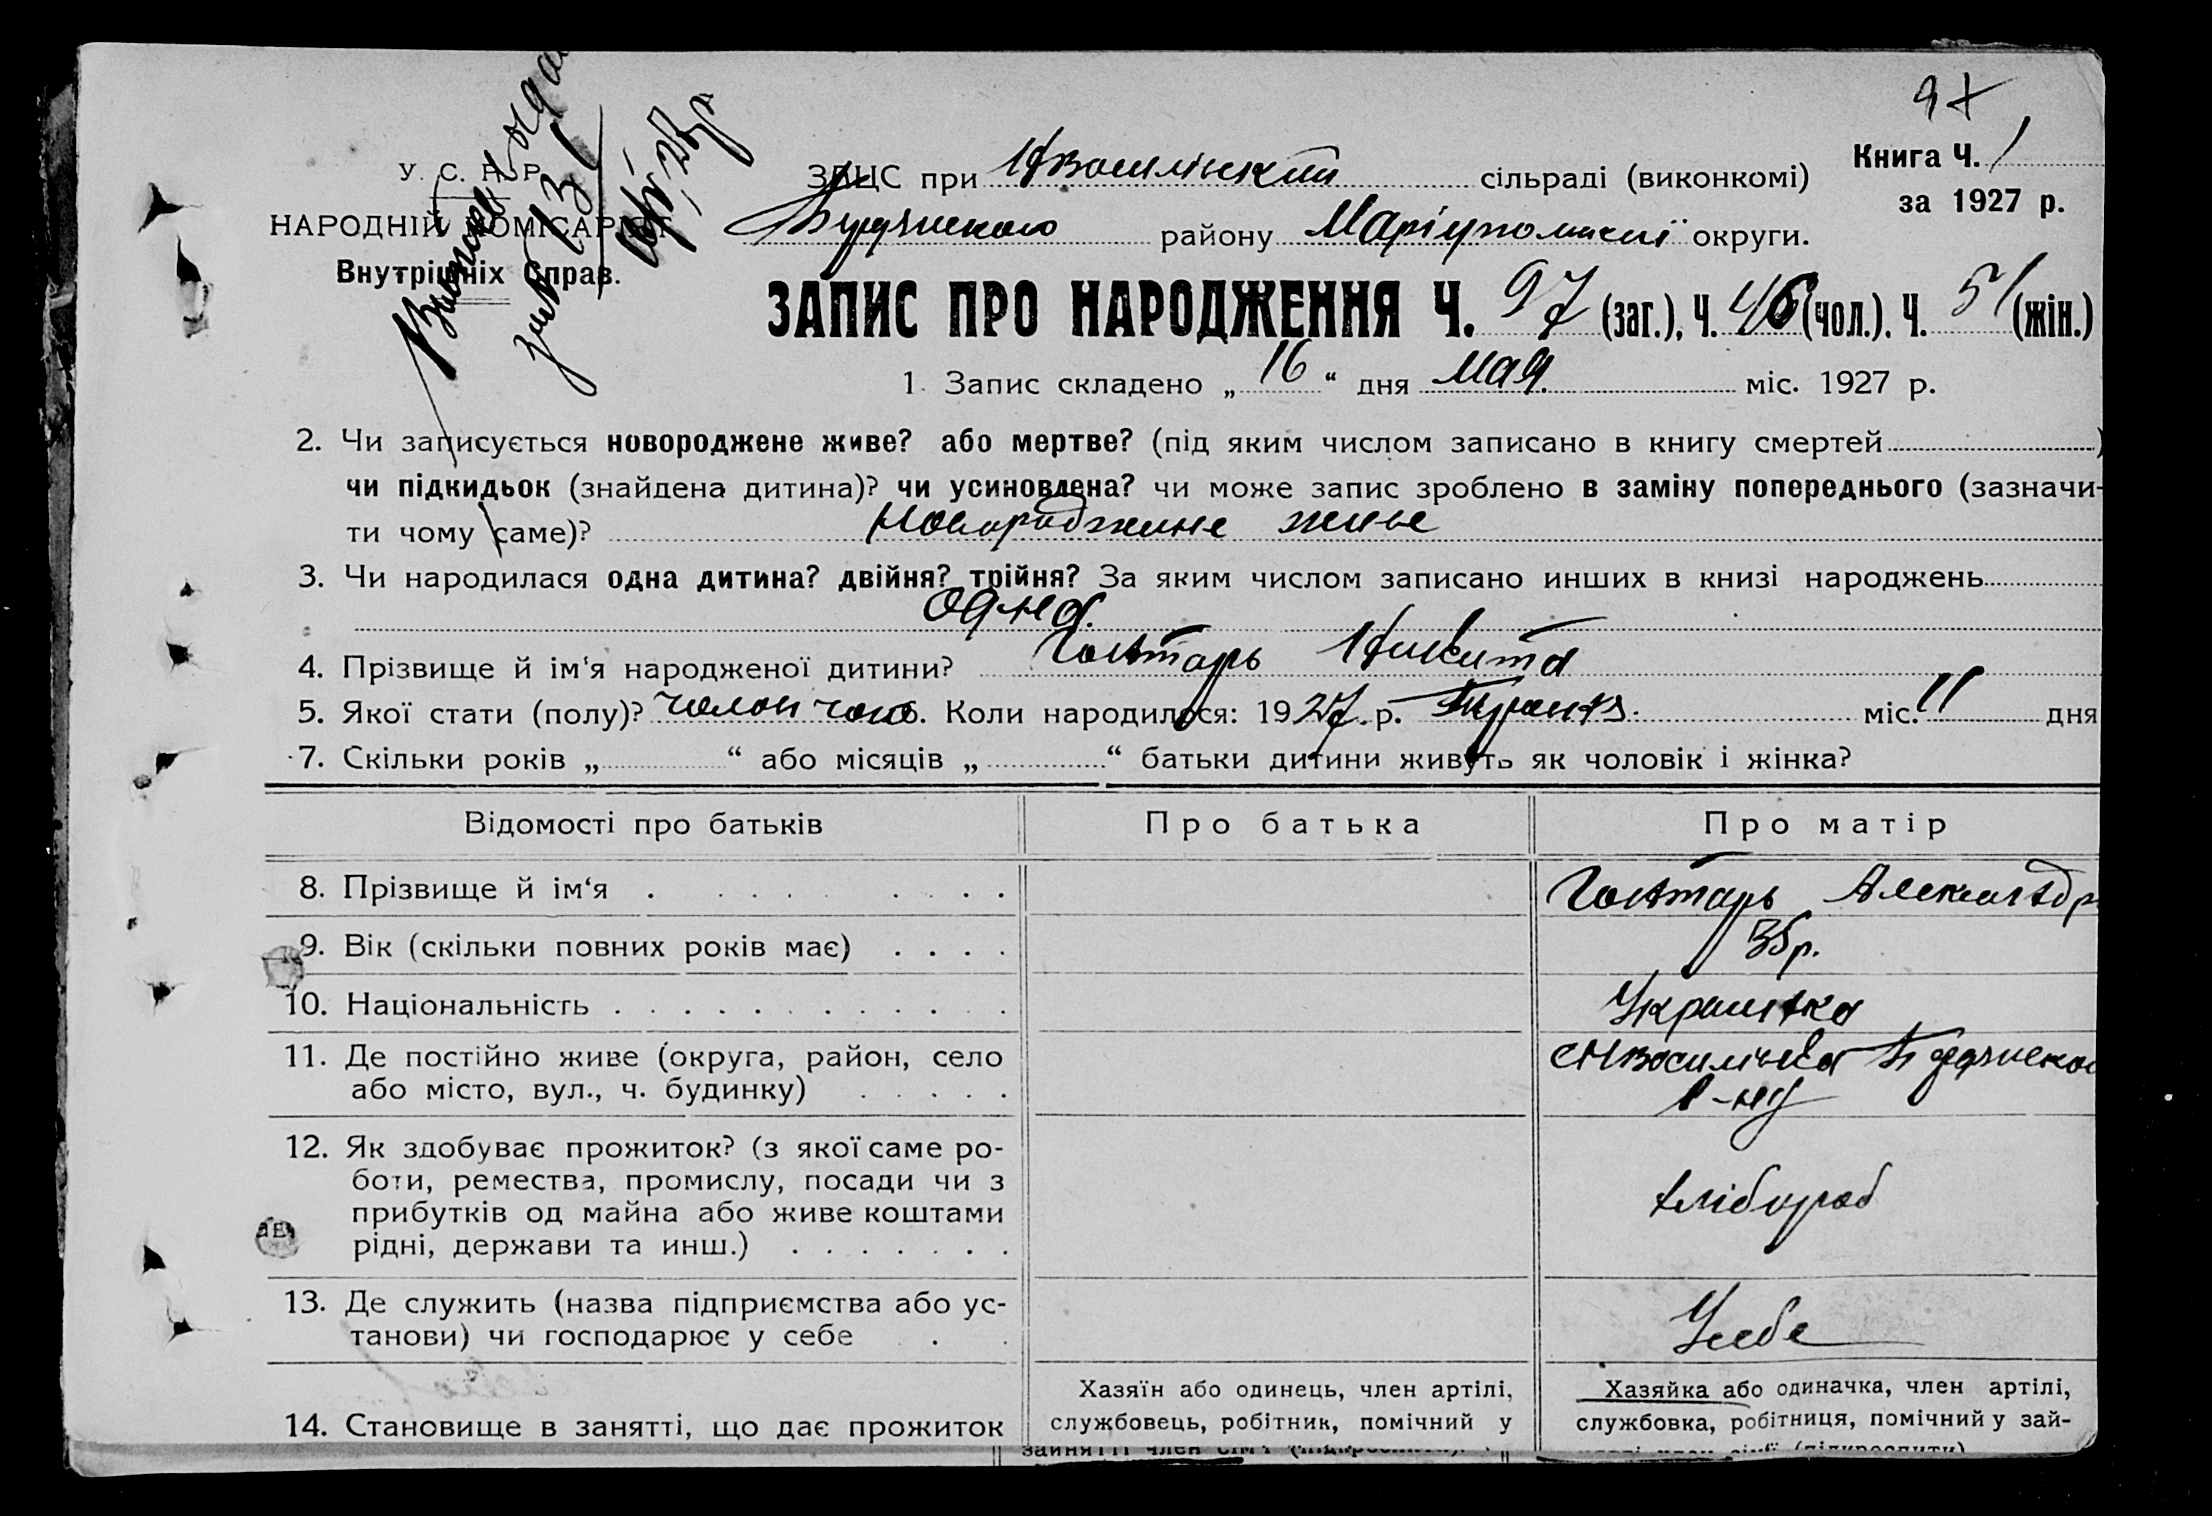 97
У. С. Р. Р.
НАРОДНІЙ КОМІСАРІЯТ
Внутрішніх Справ.
ЗВЦС при Нвасилівский сільраді (виконкомі)
Книга Ч. 1
за 1927 р.
району Маріупольскої округи.
ЗАПИС ПРО НАРОДЖЕННЯ Ч. 97 (заг.), Ч. 46 (чол.). Ч. 51 (жін.)
1. Запис складено „ 16 “ дня мая міс. 1927 р.
2. Чи записується новороджене живе? або мертве? (під яким числом записано в книгу смертей )
чи підкидьок (знайдена дитина)? чи усиновлена? чи може запис зроблено в заміну попереднього (зазначи-
ти чому саме)? Новораджине живе
3. Чи народилася одна дитина? двійня? трійня? За яким числом записано инших в книзі народжень
одна.
4. Прізвище й ім'я народженої дитини? Гонтарь Никита
5. Якої стати (полу)? 6. Коли народилося: 1927 р. міс. 11 дня
7. Скільки років „ “ або місяців „ “ батьки дитини живуть як чоловік і жінка?
Відомості про батьків Про батька Про матір
8. Прізвище й ім‘я . . . . . . . . . Гонтарь Александр
9. Вік (скільки повних років має) . . . . 35 р.
10. Національність . . . . . . . . . . . . Украинка
11. Де постійно живе (округа, район, село
або місто, вул., ч. будинку) . . . . .
с Нвасилівка
р-ну
12. Як здобуває прожиток? (з якої саме ро-
боти, ремества, промислу, посади чи з
прибутків од майна або живе коштами
рідні, держави та инш.) . . . . . . .
хлібороб
13. Де служить (назва підприємства або ус-
танови) чи господарює у себе . .
У себе
14. Становище в занятті, що дає прожиток
Хазяїн або одинець, член артілі,
службовець, робітник, помічний у
зайнятті член сім'ї (підкреслити).
Хазяйка або одиначка, член артілі,
службовка, робітниця, помічний у зай-
нятті член сім'ї (підкреслити)